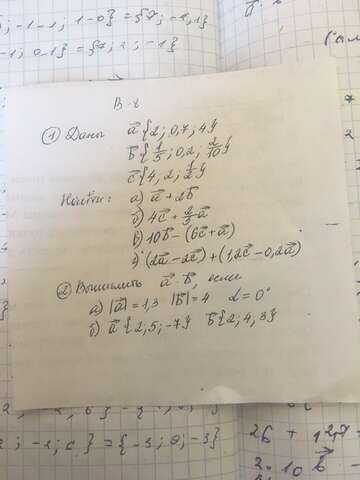 ; -1-1; 1-0} = {7; -2,1}
-1; 0-1} = {7; 2; -1}
В-8
① Даны a{2; 0,7; 4}
b{1/5; 0,2; 2/10}
c{4; 2; 1/2}
Найти: а) a + 2b
б) 4c + 2/3 a
в) 10b - (6c + a)
г) (2a - 2c) + (1,2c - 0,2a)
② Вычислить a · b, если
а) |a| = 1,3 |b| = 4 α = 0°
б) a{2; 5; -7} b{2; 4; 3}
} = {-3; 0; -3}
2b +
2 · 10 b -